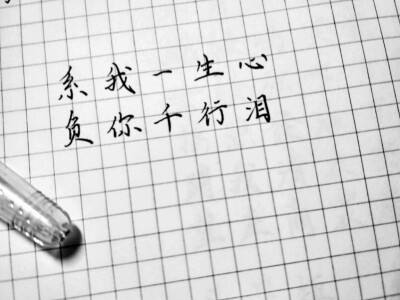 系我一生心
负你千行泪